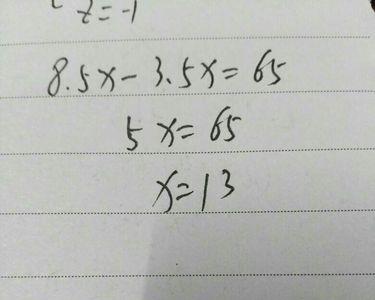 z=-1
8.5x-3.5x=65
5x=65
x=13